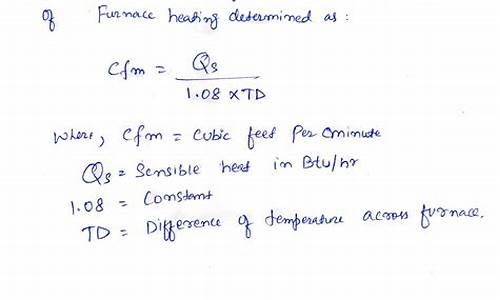 of Furnace heating determined as:
Cfm = Qs
1.08 × TD
Where, Cfm = Cubic feet Per minute
Qs = Sensible heat in Btu/hr
1.08 = Constant
TD = Difference of temperature across furnace.